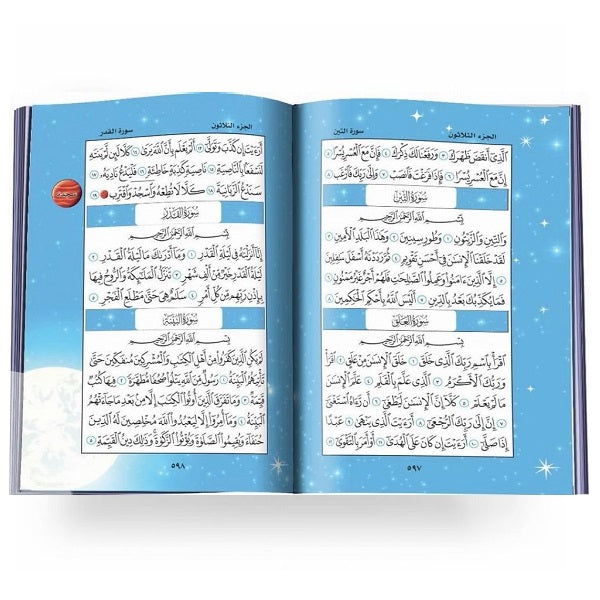 الجزء الثلاثون سورة التين
الَّذِي أَنقَضَ ظَهْرَكَ ٣ وَرَفَعْنَا لَكَ ذِكْرَكَ ٤ فَإِنَّ مَعَ الْعُسْرِ يُسْرًا ٥
إِنَّ مَعَ الْعُسْرِ يُسْرًا ٦ فَإِذَا فَرَغْتَ فَانصَبْ ٧ وَإِلَىٰ رَبِّكَ فَارْغَب ٨
سُورَةُ التِّينِ
بِسْمِ اللَّهِ الرَّحْمَٰنِ الرَّحِيمِ
وَالتِّينِ وَالزَّيْتُونِ ١ وَطُورِ سِينِينَ ٢ وَهَٰذَا الْبَلَدِ الْأَمِينِ ٣
لَقَدْ خَلَقْنَا الْإِنسَٰنَ فِي أَحْسَنِ تَقْوِيمٍ ٤ ثُمَّ رَدَدْنَٰهُ أَسْفَلَ سَٰفِلِينَ
٥ إِلَّا الَّذِينَ ءَامَنُوا وَعَمِلُوا الصَّٰلِحَٰتِ فَلَهُمْ أَجْرٌ غَيْرُ مَمْنُونٍ ٦
فَمَا يُكَذِّبُكَ بَعْدُ بِالدِّينِ ٧ أَلَيْسَ اللَّهُ بِأَحْكَمِ الْحَٰكِمِينَ ٨
سُورَةُ العَلَقِ
بِسْمِ اللَّهِ الرَّحْمَٰنِ الرَّحِيمِ
اقْرَأْ بِاسْمِ رَبِّكَ الَّذِي خَلَقَ ١ خَلَقَ الْإِنسَٰنَ مِنْ عَلَقٍ ٢ اقْرَأْ
وَرَبُّكَ الْأَكْرَمُ ٣ الَّذِي عَلَّمَ بِالْقَلَمِ ٤ عَلَّمَ الْإِنسَٰنَ
مَا لَمْ يَعْلَمْ ٥ كَلَّا إِنَّ الْإِنسَٰنَ لَيَطْغَىٰ ٦ أَن رَّءَاهُ اسْتَغْنَىٰ
٧ إِنَّ إِلَىٰ رَبِّكَ الرُّجْعَىٰ ٨ أَرَءَيْتَ الَّذِي يَنْهَىٰ ٩ عَبْدًا
إِذَا صَلَّىٰ ١٠ أَرَءَيْتَ إِن كَانَ عَلَى الْهُدَىٰ ١١ أَوْ أَمَرَ بِالتَّقْوَىٰ ١٢
٥٩٧
الجزء الثلاثون سورة القدر
أَرَءَيْتَ إِن كَذَّبَ وَتَوَلَّىٰ ١٣ أَلَمْ يَعْلَم بِأَنَّ اللَّهَ يَرَىٰ ١٤ كَلَّا لَئِن لَّمْ يَنتَهِ
لَنَسْفَعًا بِالنَّاصِيَةِ ١٥ نَاصِيَةٍ كَٰذِبَةٍ خَاطِئَةٍ ١٦ فَلْيَدْعُ نَادِيَهُ ١٧
سَنَدْعُ الزَّبَانِيَةَ ١٨ كَلَّا لَا تُطِعْهُ وَاسْجُدْ وَاقْتَرِب ١٩
سُورَةُ القَدْرِ
بِسْمِ اللَّهِ الرَّحْمَٰنِ الرَّحِيمِ
إِنَّا أَنزَلْنَٰهُ فِي لَيْلَةِ الْقَدْرِ ١ وَمَا أَدْرَىٰكَ مَا لَيْلَةُ الْقَدْرِ ٢
لَيْلَةُ الْقَدْرِ خَيْرٌ مِّنْ أَلْفِ شَهْرٍ ٣ تَنَزَّلُ الْمَلَٰئِكَةُ وَالرُّوحُ فِيهَا
بِإِذْنِ رَبِّهِم مِّن كُلِّ أَمْرٍ ٤ سَلَٰمٌ هِيَ حَتَّىٰ مَطْلَعِ الْفَجْرِ ٥
سُورَةُ البَيِّنَةِ
بِسْمِ اللَّهِ الرَّحْمَٰنِ الرَّحِيمِ
لَمْ يَكُنِ الَّذِينَ كَفَرُوا مِنْ أَهْلِ الْكِتَٰبِ وَالْمُشْرِكِينَ مُنفَكِّينَ حَتَّىٰ
تَأْتِيَهُمُ الْبَيِّنَةُ ١ رَسُولٌ مِّنَ اللَّهِ يَتْلُوا صُحُفًا مُّطَهَّرَةً ٢ فِيهَا كُتُبٌ
قَيِّمَةٌ ٣ وَمَا تَفَرَّقَ الَّذِينَ أُوتُوا الْكِتَٰبَ إِلَّا مِن بَعْدِ مَا جَاءَتْهُمُ
الْبَيِّنَةُ ٤ وَمَا أُمِرُوا إِلَّا لِيَعْبُدُوا اللَّهَ مُخْلِصِينَ لَهُ الدِّينَ
حُنَفَاءَ وَيُقِيمُوا الصَّلَوٰةَ وَيُؤْتُوا الزَّكَوٰةَ وَذَٰلِكَ دِينُ الْقَيِّمَةِ ٥
٥٩٨